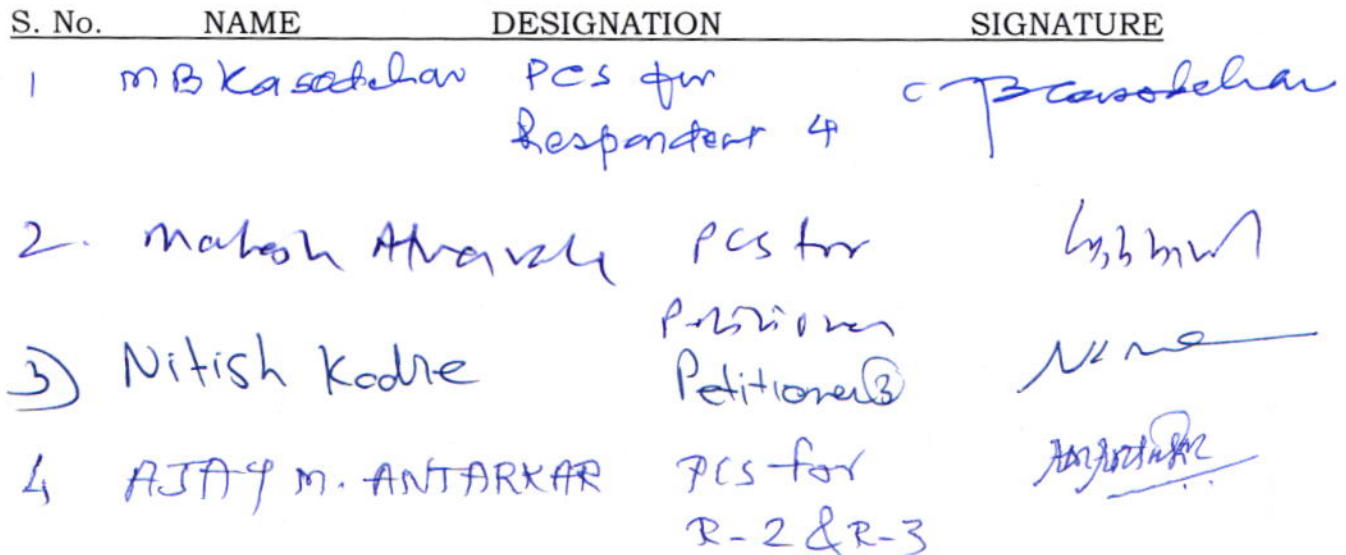 S. No. NAME DESIGNATION SIGNATURE
1 M B Kasodekar PCS for
Respondent 4
2. Mahesh PCS for
Petitioner
3) Nitish Kodre Petitioner 3
4 AJAY M. ANTARKAR PCS for
R-2 & R-3